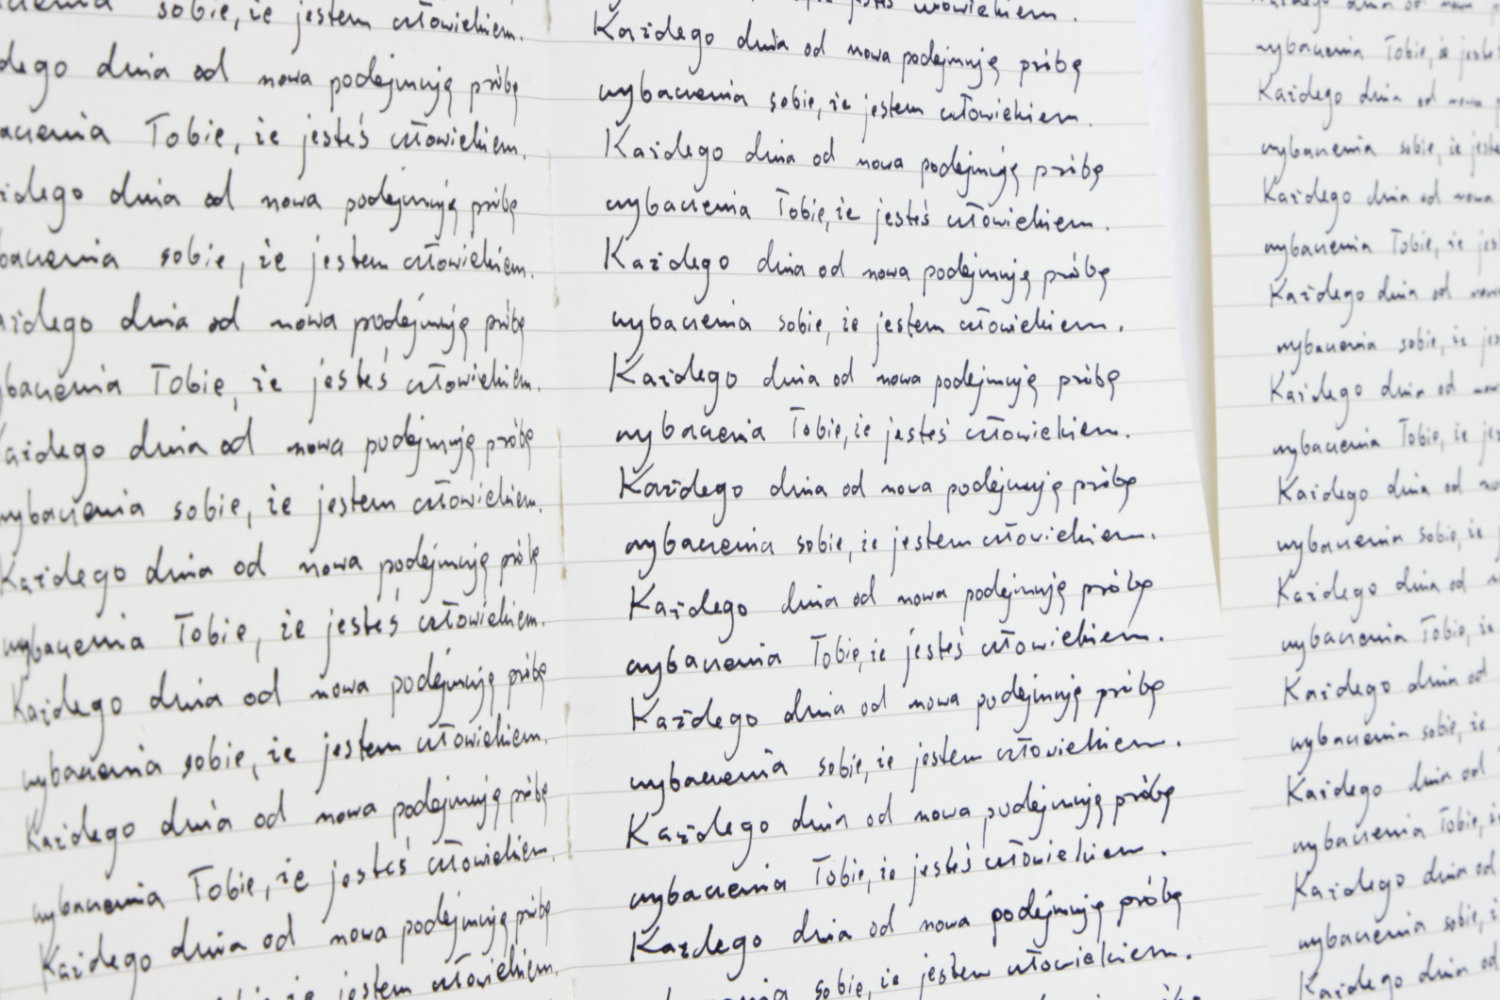 sobie, że jestem człowiekiem.
dnia od nowa podejmuję próbę
Tobie, że jesteś człowiekiem.
dnia od nowa podejmuję próbę
sobie, że jestem człowiekiem.
dnia od nowa podejmuję próbę
Tobie, że jesteś człowiekiem.
Każdego dnia od nowa podejmuję próbę
wybaczenia sobie, że jestem człowiekiem.
Każdego dnia od nowa podejmuję próbę
wybaczenia Tobie, że jesteś człowiekiem.
Każdego dnia od nowa podejmuję próbę
wybaczenia sobie, że jestem człowiekiem.
Każdego dnia od nowa podejmuję próbę
wybaczenia Tobie, że jesteś człowiekiem.
Każdego dnia od nowa podejmuję próbę
że jestem człowiekiem.
jesteś człowiekiem.
Każdego dnia od nowa podejmuję próbę
wybaczenia sobie, że jestem człowiekiem.
Każdego dnia od nowa podejmuję próbę
wybaczenia Tobie, że jesteś człowiekiem.
Każdego dnia od nowa podejmuję próbę
wybaczenia sobie, że jestem człowiekiem.
Każdego dnia od nowa podejmuję próbę
wybaczenia Tobie, że jesteś człowiekiem.
Każdego dnia od nowa podejmuję próbę
wybaczenia sobie, że jestem człowiekiem.
Każdego dnia od nowa podejmuję próbę
wybaczenia Tobie, że jesteś człowiekiem.
Każdego dnia od nowa podejmuję próbę
wybaczenia sobie, że jestem człowiekiem.
Każdego dnia od nowa podejmuję próbę
wybaczenia Tobie, że jesteś człowiekiem.
Każdego dnia od nowa podejmuję próbę
wybaczenia sobie, że jestem człowiekiem.
próbę
wybaczenia Tobie, że
Każdego dnia od nowa
wybaczenia sobie, że
Każdego dnia od nowa
wybaczenia Tobie, że
Każdego dnia od
wybaczenia sobie, że
Każdego dnia od
wybaczenia Tobie, że
Każdego dnia od
wybaczenia sobie, że
Każdego dnia od
wybaczenia Tobie, że
Każdego dnia od
wybaczenia sobie, że
Każdego dnia od
wybaczenia Tobie,
Każdego dnia od
wybaczenia sobie,
Każdego dnia od